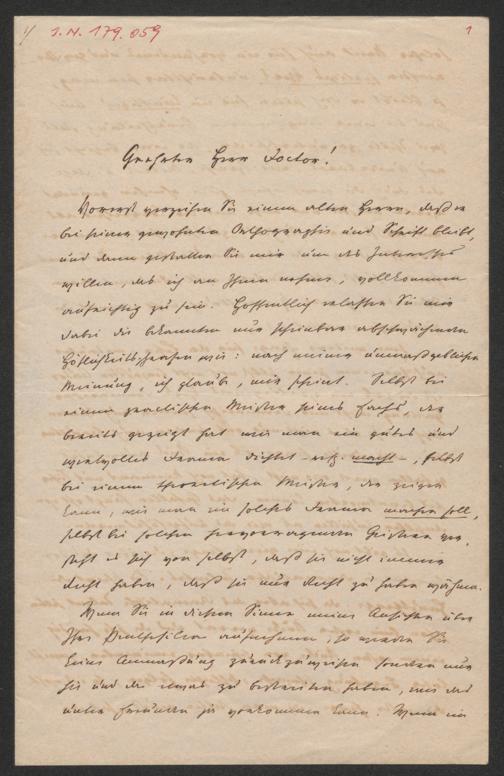 I.N. 179.059
1
Geehrter Herr Doctor!
Vorerst verzeihen Sie einem alten Herrn, daß er
bei seiner gewohnten Orthographie und Schrift bleibt,
und dann gestatten Sie mir um des Interesses
willen, das ich an Ihnen nehme, vollkommen
aufrichtig zu sein. Hoffentlich erlassen Sie mir
dabei die bekannten nur scheinbar abschwächenden
Höflichkeitsphrasen wie: nach meiner unmaßgeblichen
Meinung, ich glaube, mir scheint. Selbst bei
einem praktischen Meister seines Fachs, der
bereits gezeigt hat wie man ein gutes und
wertvolles Drama dichtet – macht –, selbst
bei einem theoretischen Meister, der zeigen
kann, wie man ein solches Drama machen soll,
selbst bei solchen hervorragenden Geistern ver-
steht es sich von selbst, daß sie nicht immer
Recht haben, daß sie nur Recht zu haben wähnen.
Wenn Sie in diesem Sinne meine Ansichten über
Ihre aufnehmen, so werden Sie
keine Anmaßung zurückzuweisen sondern nur
hie und da etwas zu bestreiten haben, wie das
unter Freunden ja vorkommen kann. Wenn ein